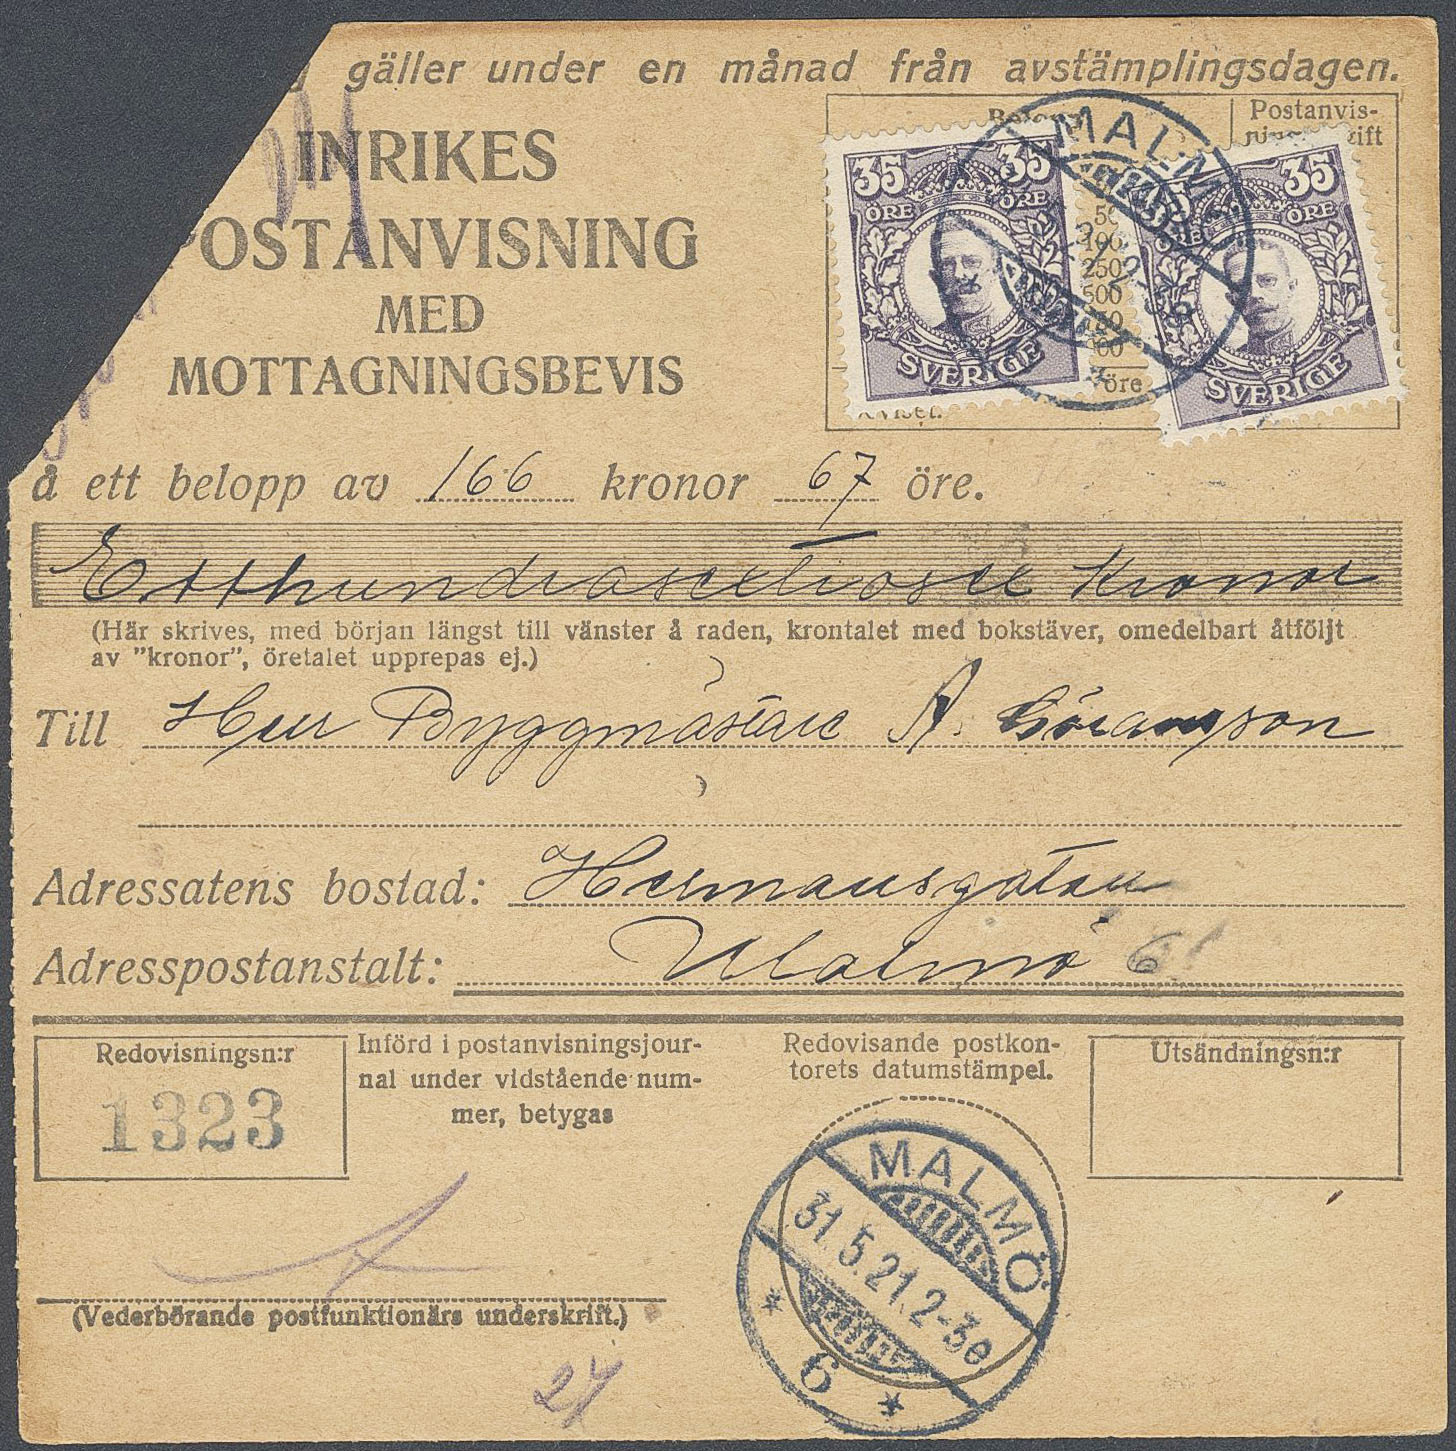 gäller under en månad från avstämplingsdagen.
INRIKES
POSTANVISNING
MED
MOTTAGNINGSBEVIS
Belopp
Postanvis-
35 35
ÖRE ÖRE
SVERIGE
35
ÖRE ÖRE
SVERIGE
250
500
öre
MALMÖ
å ett belopp av 166 kronor 67 öre.
Etthundrasextiosex Kronor
(Här skrives, med början längst till vänster å raden, krontalet med bokstäver, omedelbart åtföljt
av ”kronor”, öretalet upprepas ej.)
Till Herr Byggmästare A. Göransson
Adressatens bostad: Hermansgatan
Adresspostanstalt: Malmö 6
Redovisningsn:r
1323
Införd i postanvisningsjour-
nal under vidstående num-
mer, betygas
Redovisande postkon-
torets datumstämpel.
Utsändningsn:r
MALMÖ
31.5.21.2-3e
* 6 *
(Vederbörande postfunktionärs underskrift.)
27